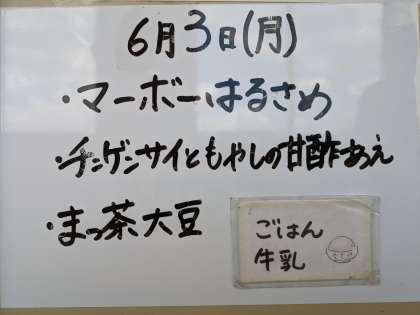 6月3日(月)
・マーボーはるさめ
・チンゲンサイともやしの甘酢あえ
・まっ茶大豆
ごはん
牛乳